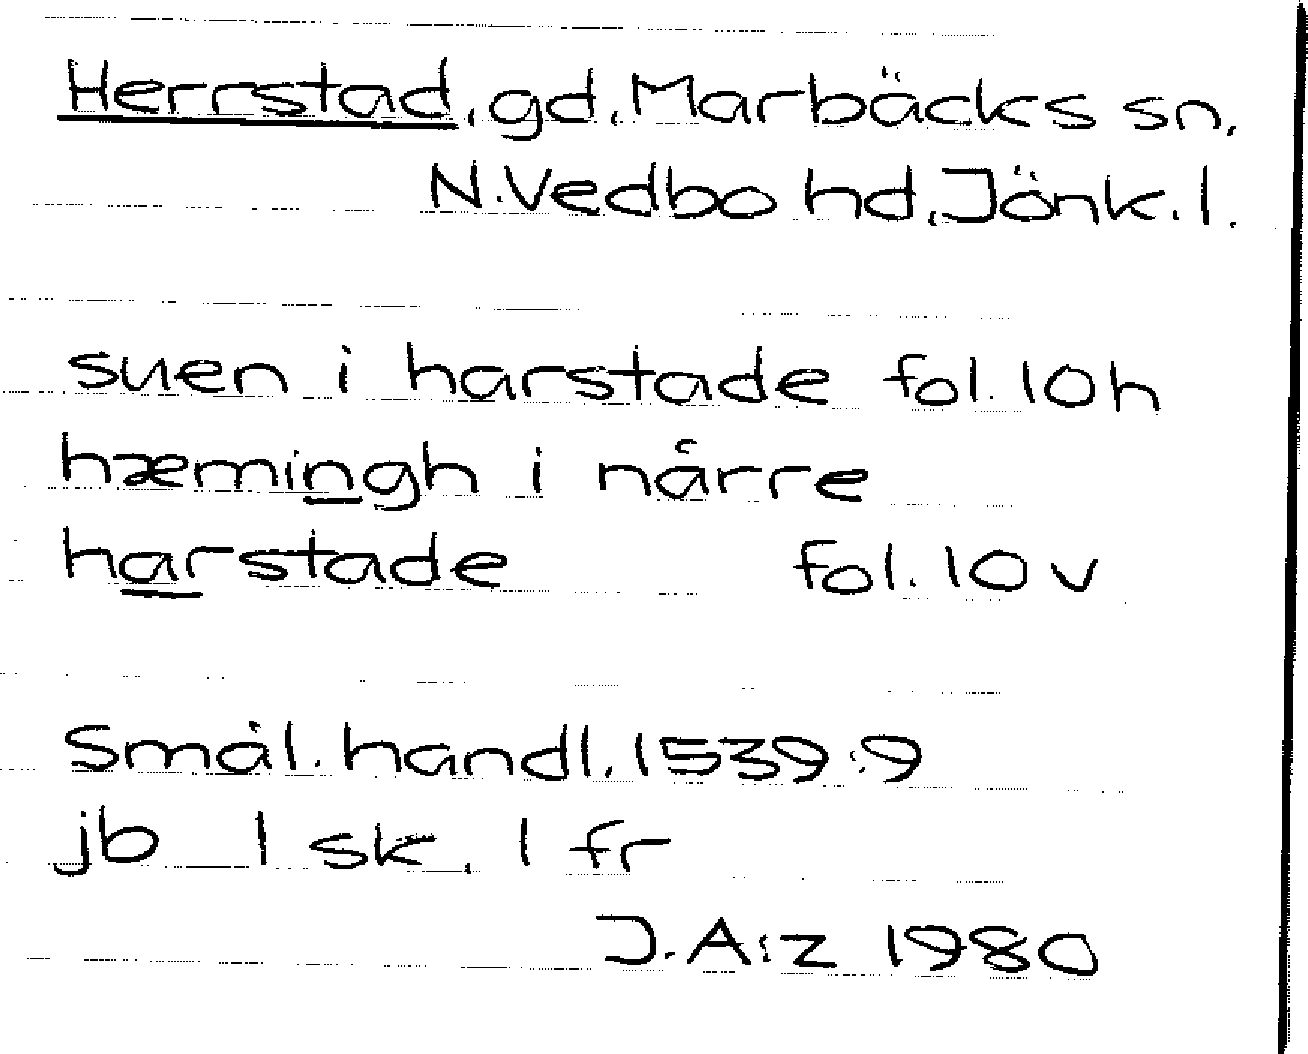 Herrstad, gd, Marbäcks sn,
N. Vedbo hd, Jönk. l.
suen i harstade fol. 10 h
hæmingh i nårre
harstade fol. 10 v
Smål. handl. 1539:9
jb 1 sk, 1 fr
J. A:z 1980